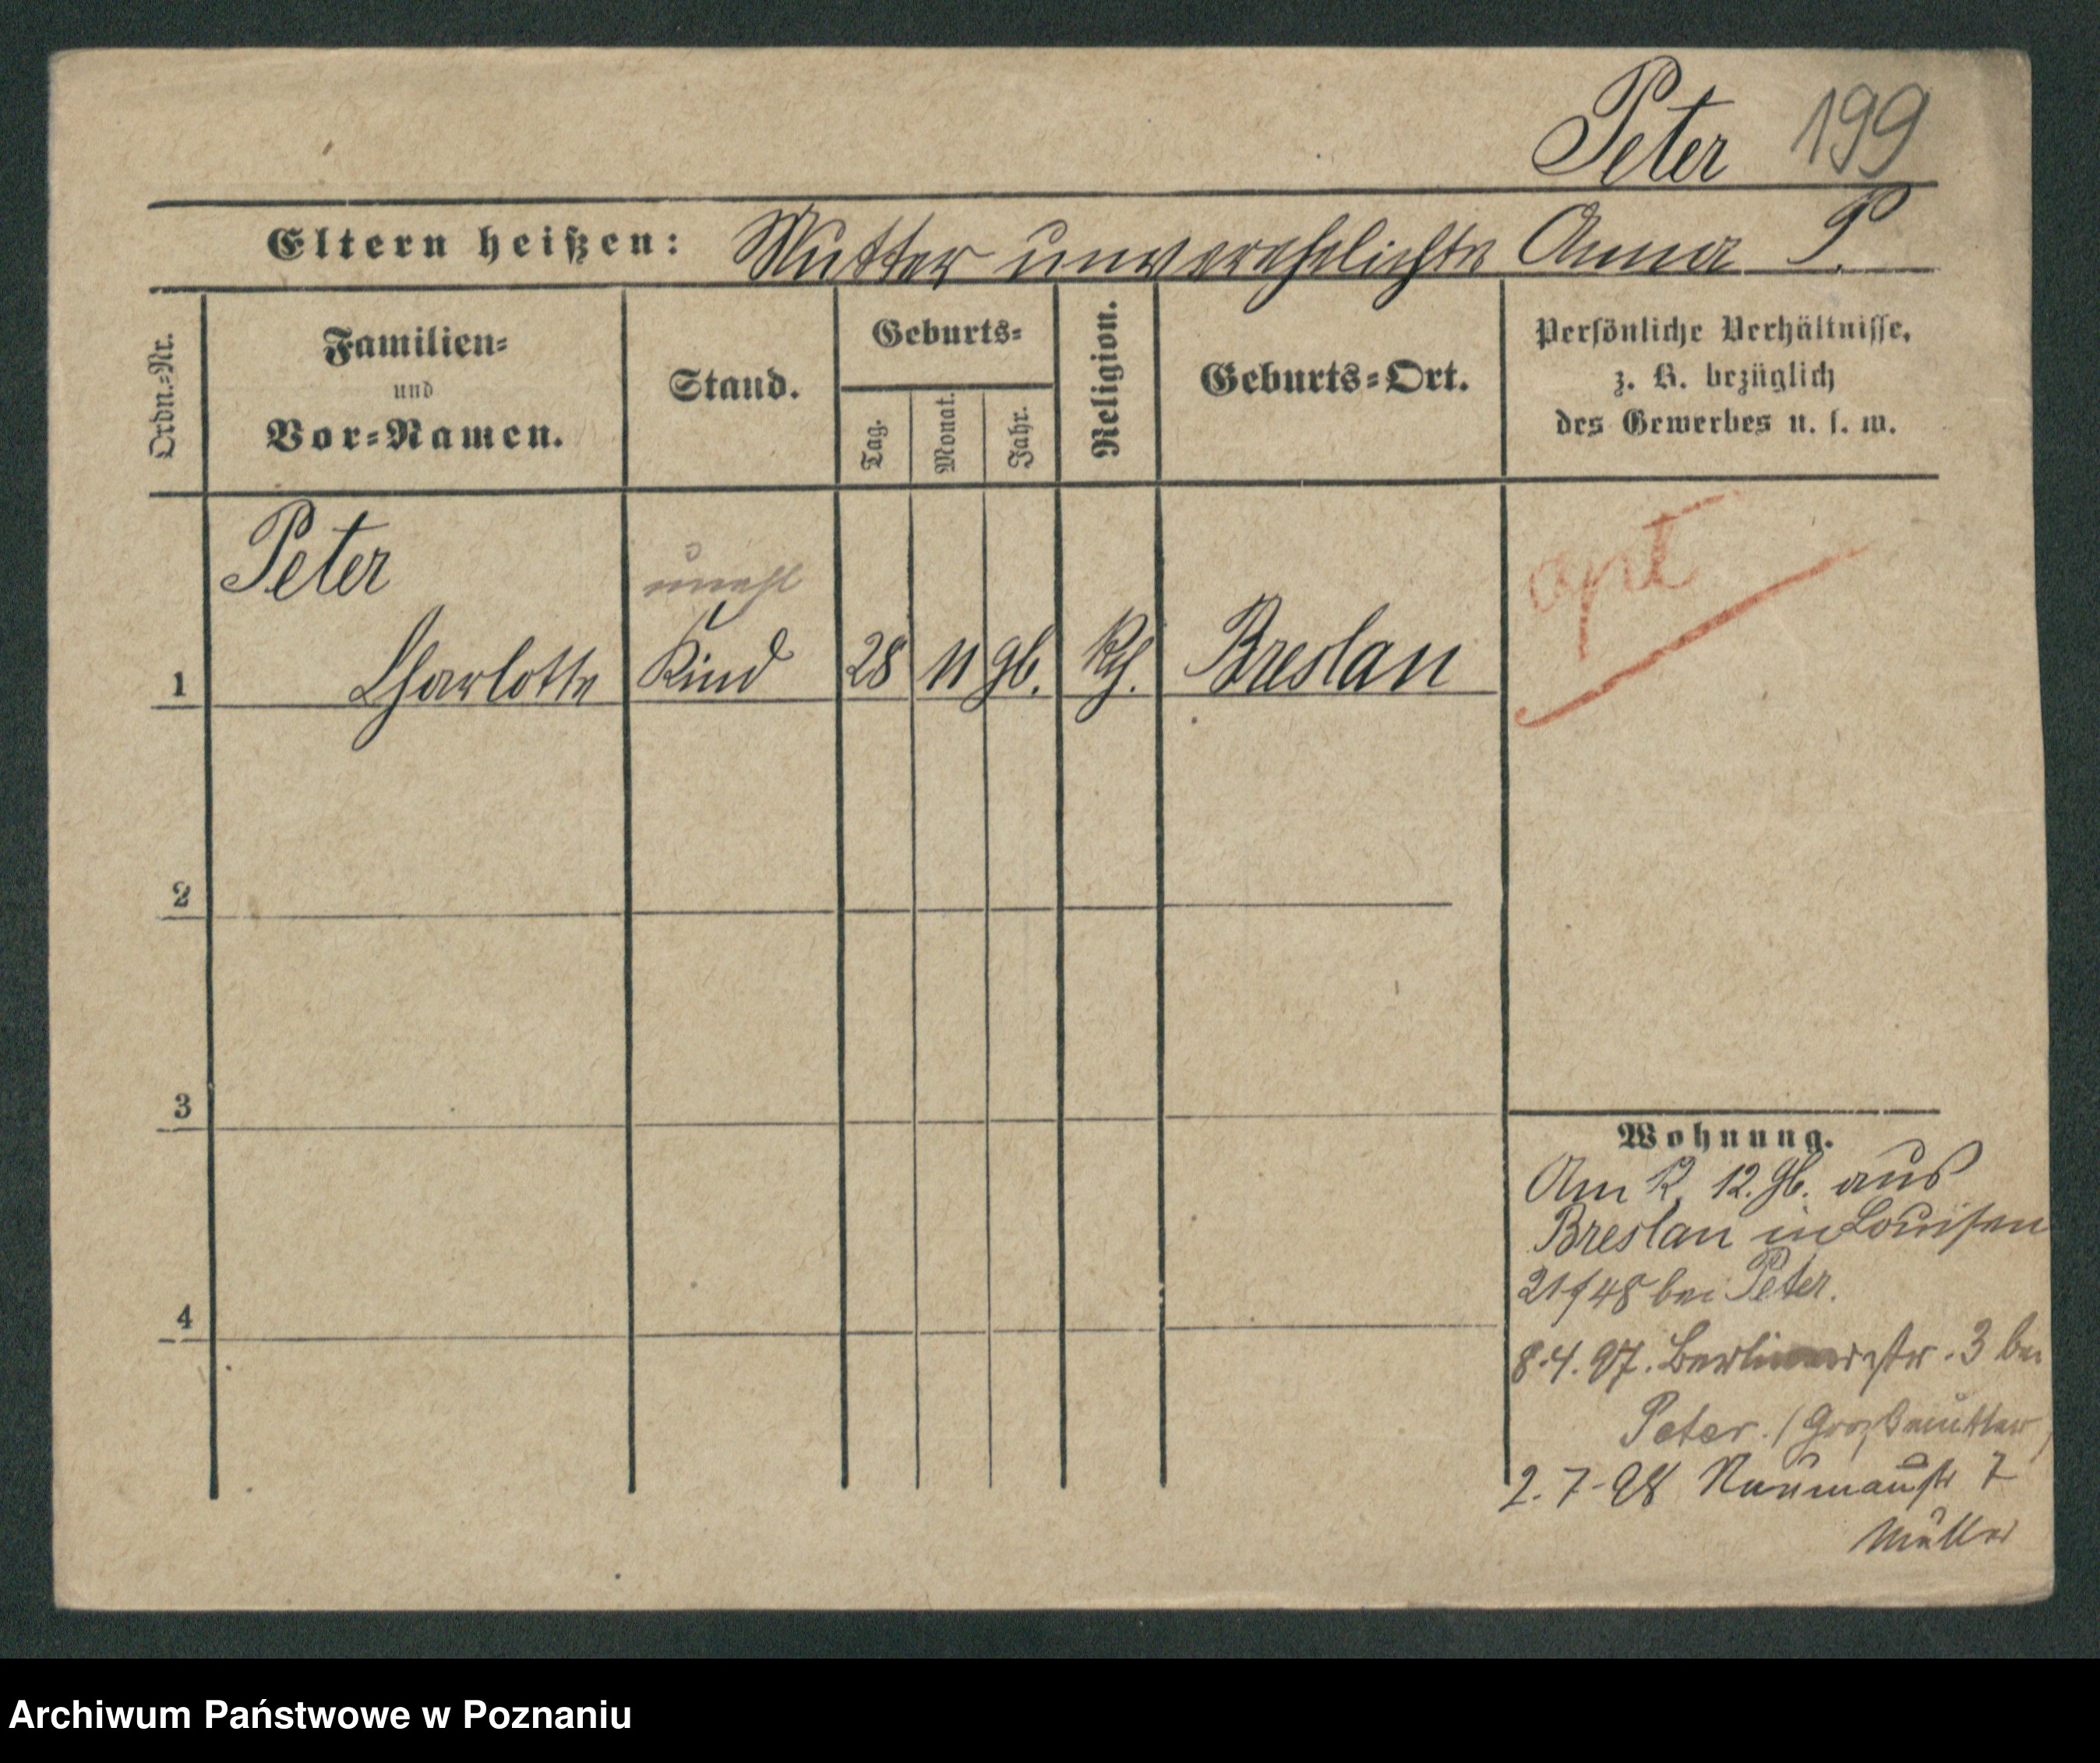 Peter 199
Eltern heißen: Mutter unverehelichte Anna P.
Ordn.=Nr.
Familien=
und
Vor=Namen.
Stand.
Geburts=
Tag.
Monat.
Jahr.
Religion.
Geburts=Ort.
Persönliche Verhältnisse,
z. B. bezüglich
des Gewerbes u. s. w.
Peter
unehl
1 Charlotte Kind 28 11 96. Breslau
2
3
4
Wohnung.
Am 12. 96. aus
Breslau in Louisen
21/48 bei Peter.
8.4.97. Berlinerstr. 3 bei
Peter. (Großmutter)
2.7-98 Naumannstr 7
Müller
Archiwum Państwowe w Poznaniu